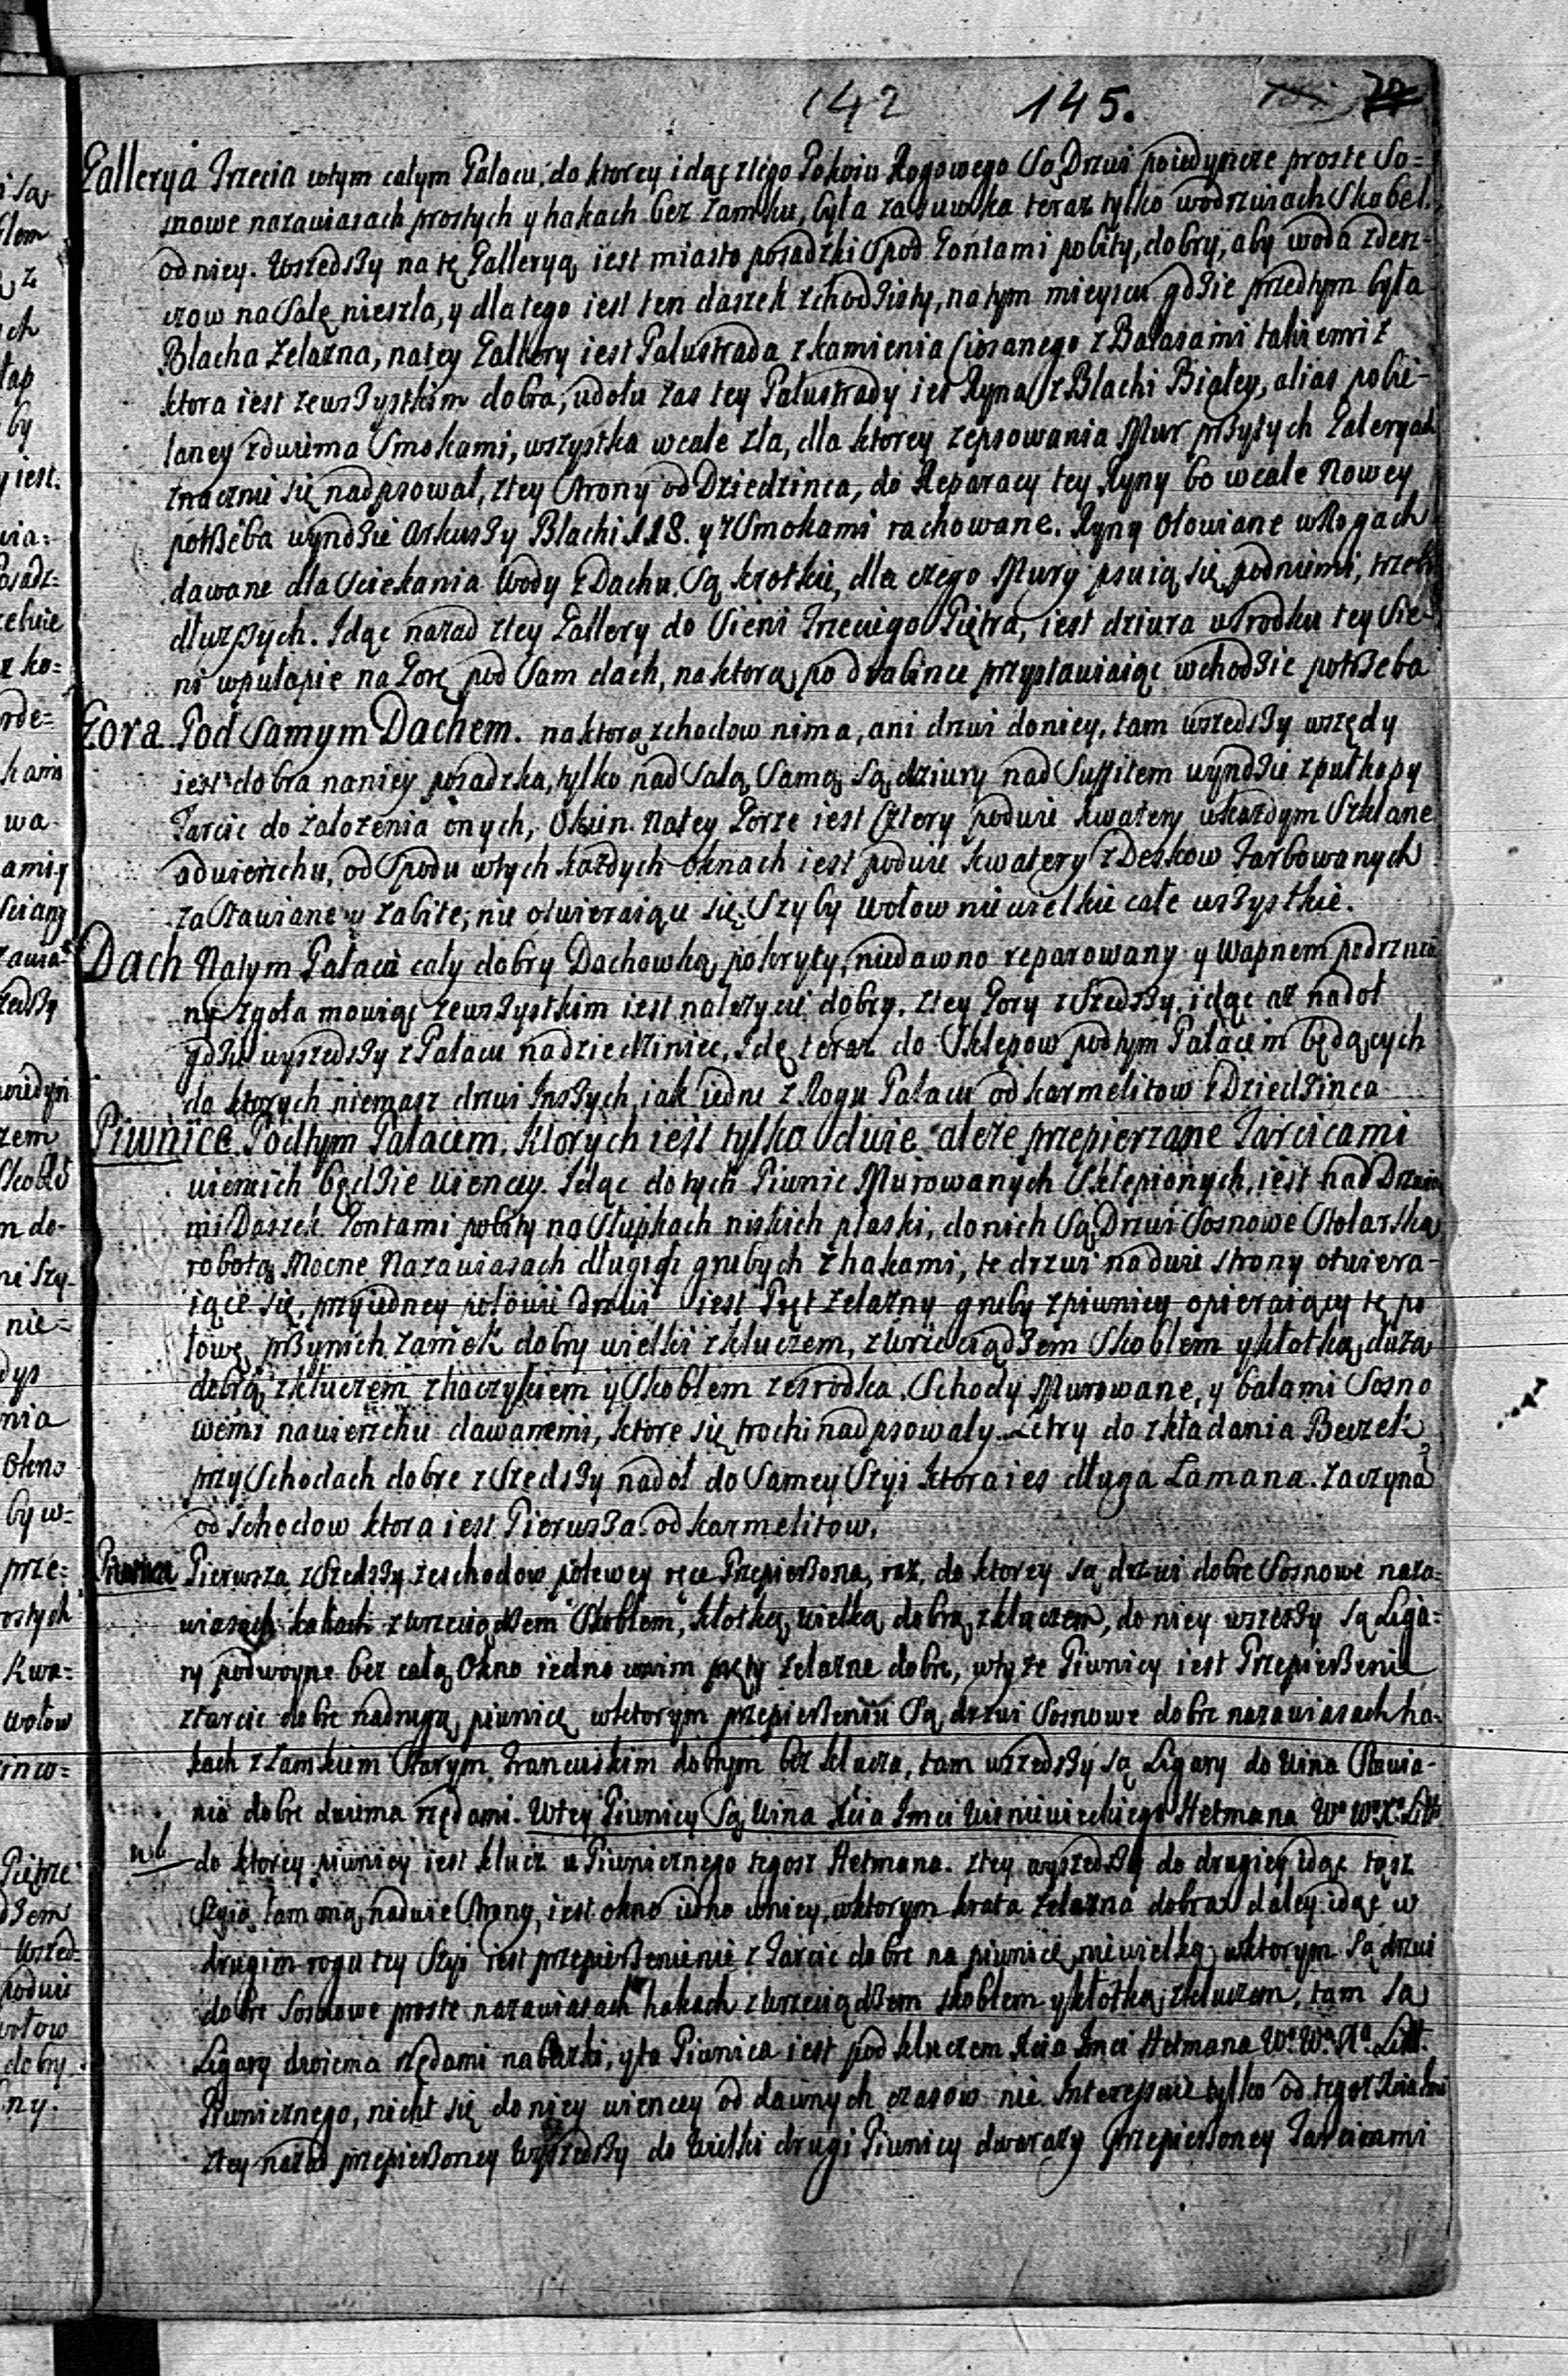 142 145.
Gallerya Trzecia wtym całym Pałacu, do ktorey idąc ztego Pokoiu Rogowego Są Drzwi poiedyncze proste So=
snowe nazawiasach prostych y hakach bez zamku, była zasuwka teraz tylko wodrzwiach Skobel.
odniey. Wszedszy na tę Galleryą iest miasto posadzki Spod Gontami pobity, dobry, aby woda zdesz-
czow na Salę nieszła, y dlatego iest ten daszek zchodzisty, na tym mieyscu gdzie przedtym była
Blacha żelazna, natey Gallery iest Palustrada z kamienia Ciosanego z Balasami takiemiż
ktora iest zewszystkim dobra, udołu zas tey Palustrady iest Ryna z Blachi Białey, alias pobie-
laney zdwima Smokami, wszystka wcale zła, dla ktorey zepsowania Mur przytych Galeryach
znacznie się nadpsował, ztey Strony od Dziedzinca, do Reparacy tey Ryny bo wcale Nowey
potrzeba wyndzie Arkuszy Blachi 118. y z Smokami rachowane. Ryny Ołowiane wRogach
dawane dla Sciekania Wody z Dachu, Są krotkie, dla czego Mury psuią się podniemi, trzeb
dłuzszych. Idąc nazad ztey Gallery do Sieni Trzeciego Piętra, iest dziura uSrodku tey Sie-
ni wpułapie na Gorę pod Sam dach, na ktorą po drabince przystawiaiąc wchodzić potrzeba
Gora Pod Samym Dachem. naktorą zchodow nima, ani drzwi doniey, tam wszedszy wszędy
iest dobra naniey posadzka, tylko nad Salą Samą Są dziury nad Suffitem wyndzie zpułkopy
Tarcic do założenia onych, Okien Natey Gorze iest Cztery podwie kwatery wkażdym Szklane
odwierzchu, od Spodu wtych każdych oknach iest podwie kwatery z Deskow Farbowanych
zastawiane y zabite, nie otwieraiące się, Szyby wołow niewielkie całe wszystkie.
Dach Natym Pałacu cały dobry Dachowką pokryty, niedawno reparowany y Wapnem podrzuca
ny zgoła mowiąc zewszystkim iest należycie dobry. ztey Gory zSzedszy, idąc az nadoł
gdzie wyszedszy z Pałacu na dziedziniec, Idę teraz do Sklepow podtym Pałacem będących
do ktorych niemasz drzwi Inszych, iak iedne z Rogu Pałacu od Karmelitow z Dziedzinca
Piwnice Podtym Pałacem. Ktorych iest tylko dwie aleze przepierzane Tarcicami
wiencich będzie wiencey. Idąc dotych Piwnic Murowanych Sklepionych, iest nad Drzwia
mi Daszek Gontami pobity na Słupkach niskich płaski, donich Są Drzwi Sosnowe Stolarską
robotą Mocne Nazawiasach długich grubych zhakami, te drzwi nadwie strony otwiera-
iące się, przyiedney połowie drzwi iest Pręt żelazny gruby zpiwnicy opieraiący tę po
łowę, przynich zamek dobry wielki zkluczem, zwrzeciądzem Skoblem y kłotką, dużą
dobrą zkluczem zhaczykiem y Skoblem zesrodka. Schody Murowane, y balami Sosno
wemi nawierzchu dawanemi, ktore się trochi nadpsowały. Letry do zkładania Beczek
przy Schodach dobre zSzedszy nadoł do Samey Szyi ktora ies długa Lamana. zaczyna
od Schodow ktora iest Pierwsza od Karmelitow.
Piwnica Pierwsza zSzedszy zeschodow polewey ręce Przepierzona, raz, do ktorey są drzwi dobre Sosnowe naza=
wiasach hakach zwrzeciądzem Skoblem, kłotką, wielką, dobrą, zkluczem, do niey wszeszy są Liga=
ry podwoyne bez całą, Okno iedno wnim pręty żelazne dobre, wtyże Piwnicy iest Przepierzenie
ztarcic dobre nadrugą piwnicę wktorym przepierzeniu Są drzwi Sosnowe dobre nazawiasach ha=
kach zzamkiem Starym Francuskim dobrym bez klucza, tam wszedszy są Ligary do Wina Stawia-
nia dobre dwiema rzędami. Wtey Piwnicy Są Wina Xcia Imci Wisniewieckiego Hetmana Wo Wo Xo Litt
nb do ktorey piwnicy iest klucz u Piwnicznego tegosz Hetmana. ztey wyszedszy do drugiey idąc tąsz
Szyią łamaną, nadwie Strony, iest okno iedno wniey, wktorym krata żelazna dobra daley idąc w
drugim rogu tey Szyi iest przepierzenienie z Tarcic dobre na piwnicę niewielką wktorym Są drzwi
dobre Sosnowe proste nazawiasach hakach zwrzeciądzem skoblem y kłotką, zkluczem, tam są
Ligary dwiema rzędami naBeczki, yta Piwnica iest pod kluczem Xcia Imci Hetmana Wo Wo Xo Litt.
Piwnicznego, nicht się doniey wiencey od dawnych czasow nie Interesuie tylko od tegosz Xcia Imci
ztey nazad przepierzoney Wyszedszy do Wielki drugi Piwnicy dwarazy Przepierzoney Tarcicami